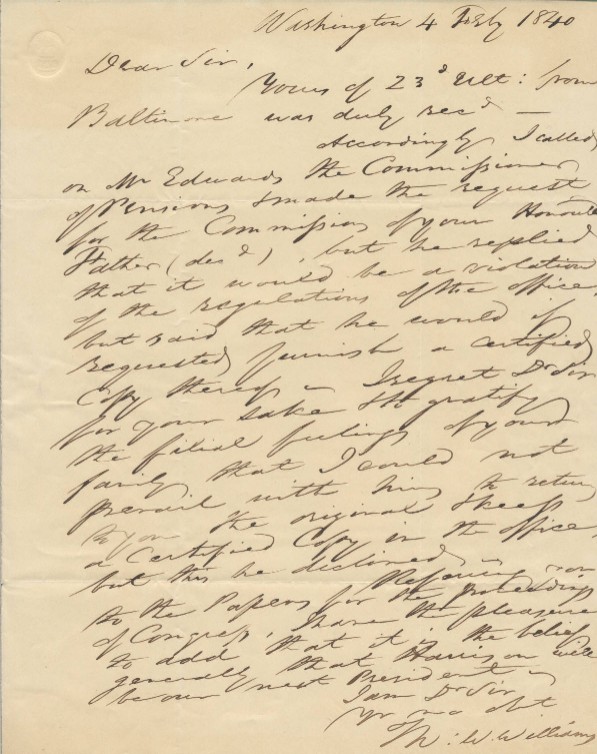 Washington 4 Feby 1840
Dear Sir,
Yours of 23d Ult: from
Baltimore was duly recd —
Accordingly I called
on Mr Edwards the Commissioner
of Pensions & made the request
for the Commission of your Honored
Father (decd), but he replied
that it would be a violation
of the regulations of the office,
but said that he would if
requested furnish a certified
Copy thereof — I regret Dr Sir
for your sake & to gratify
the filial feelings of your
family that I could not
prevail with him to return
to you the original & keep
a Certified Copy in the office,
but this he declined —
Refering you
to the Papers for the proceedings
of Congress, I have the pleasure
to add that it is the belief
generally that Harrison will
be our next President —
I am Dr Sir
Yr mo obt
Th: W. Williams